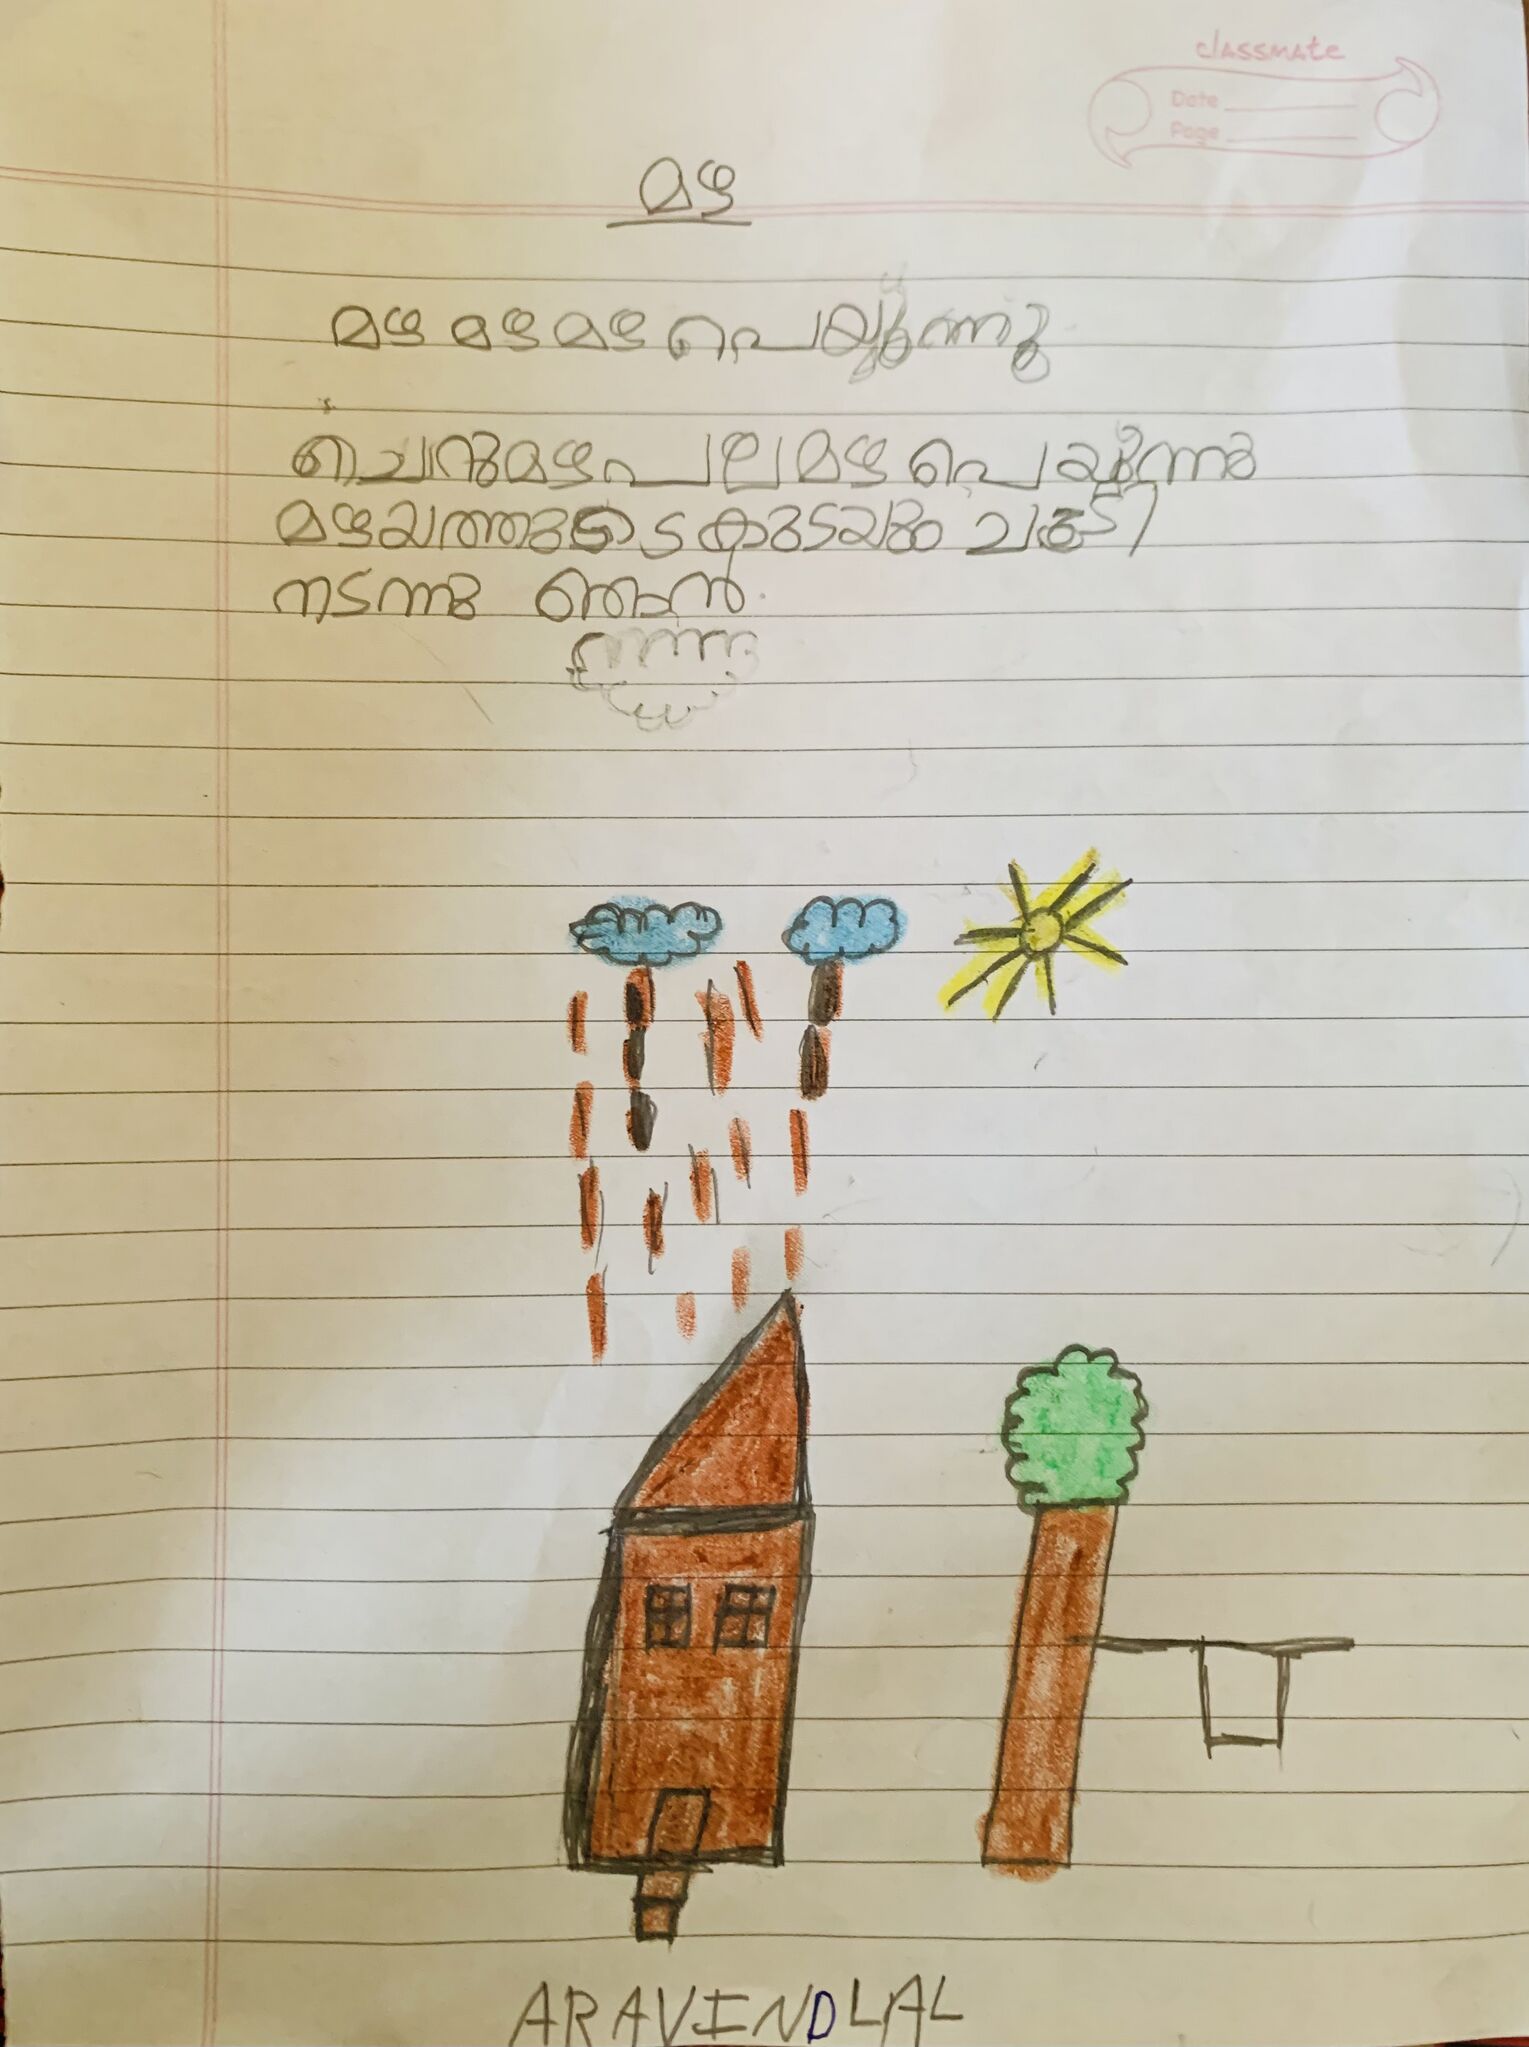 classmate
Date
Page
മഴ
മഴ മഴ മഴ പെയ്യുന്നു
ചെറുമഴ പല മഴ പെയ്യുന്നു
മഴയത്തുടെ കുടയും ചൂടി
നടന്നു ഞാൻ
ARAVINDLAL